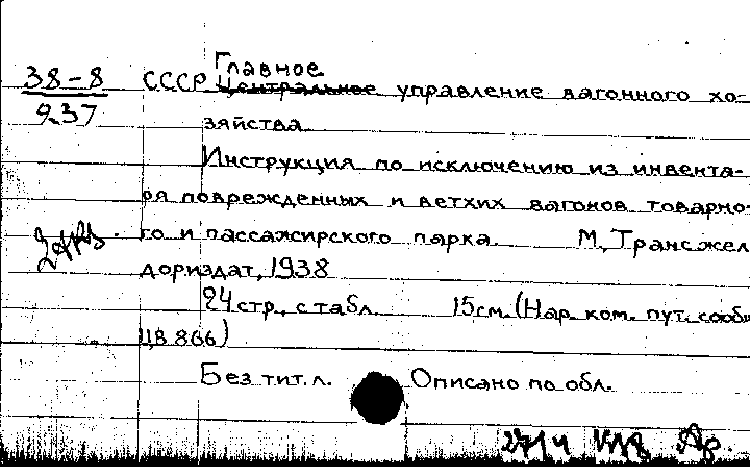 Главное
38-8 СССР Центральное управление вагонного хо-
937
зяйства
Инструкция по исключению из инвента-
ря поврежденных и ветхих вагонов товарно-
го и пассажирского парка. М, Трансжел
дориздат, 1938
24 стр., с табл. 15 см. (Нар. ком. пут. сообщ
Без тит. л. Описано по обл.